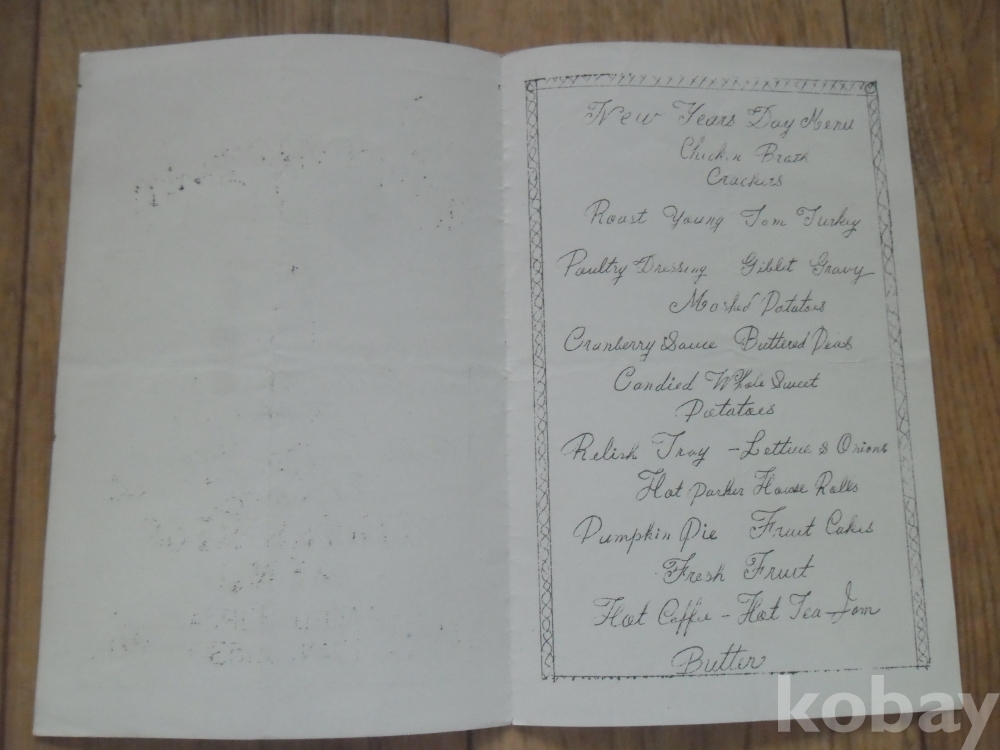 New Years Day Menu
Chicken Broth
Crackers
Roast Young Tom Turkey
Poultry Dressing Giblet Gravy
Mashed Potatoes
Cranberry Sauce Buttered Peas
Candied Whole Sweet
Potatoes
Relish Tray - Lettuce & Onions
Hot Parker House Rolls
Pumpkin Pie Fruit Cakes
Fresh Fruit
Hot Coffee - Hot Tea - Jam
Butter
kobay